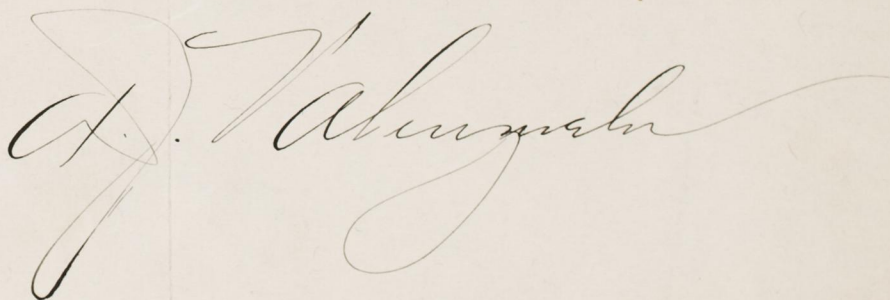 A. J. Valenzuela